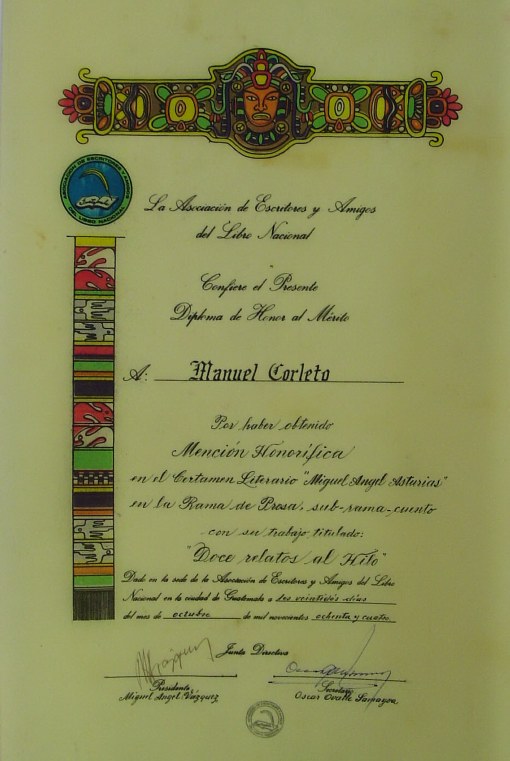 ASOCIACION DE ESCRITORES Y AMIGOS
DEL LIBRO NACIONAL
La Asociación de Escritores y Amigos
del Libro Nacional
Confiere el Presente
Diploma de Honor al Mérito
A: Manuel Corleto
Por haber obtenido
Mención Honorífica
en el Certamen Literario "Miguel Angel Asturias"
en la Rama de Prosa, sub-rama-cuento
con su trabajo titulado:
"Doce relatos al Hilo"
Dado en la sede de la Asociación de Escritores y Amigos del Libro
Nacional en la ciudad de Guatemala a los veintidós días
del mes de octubre de mil novecientos ochenta y cuatro.
Junta Directiva
Presidente Secretario
Miguel Angel Vázquez Oscar Ovalle Samayoa